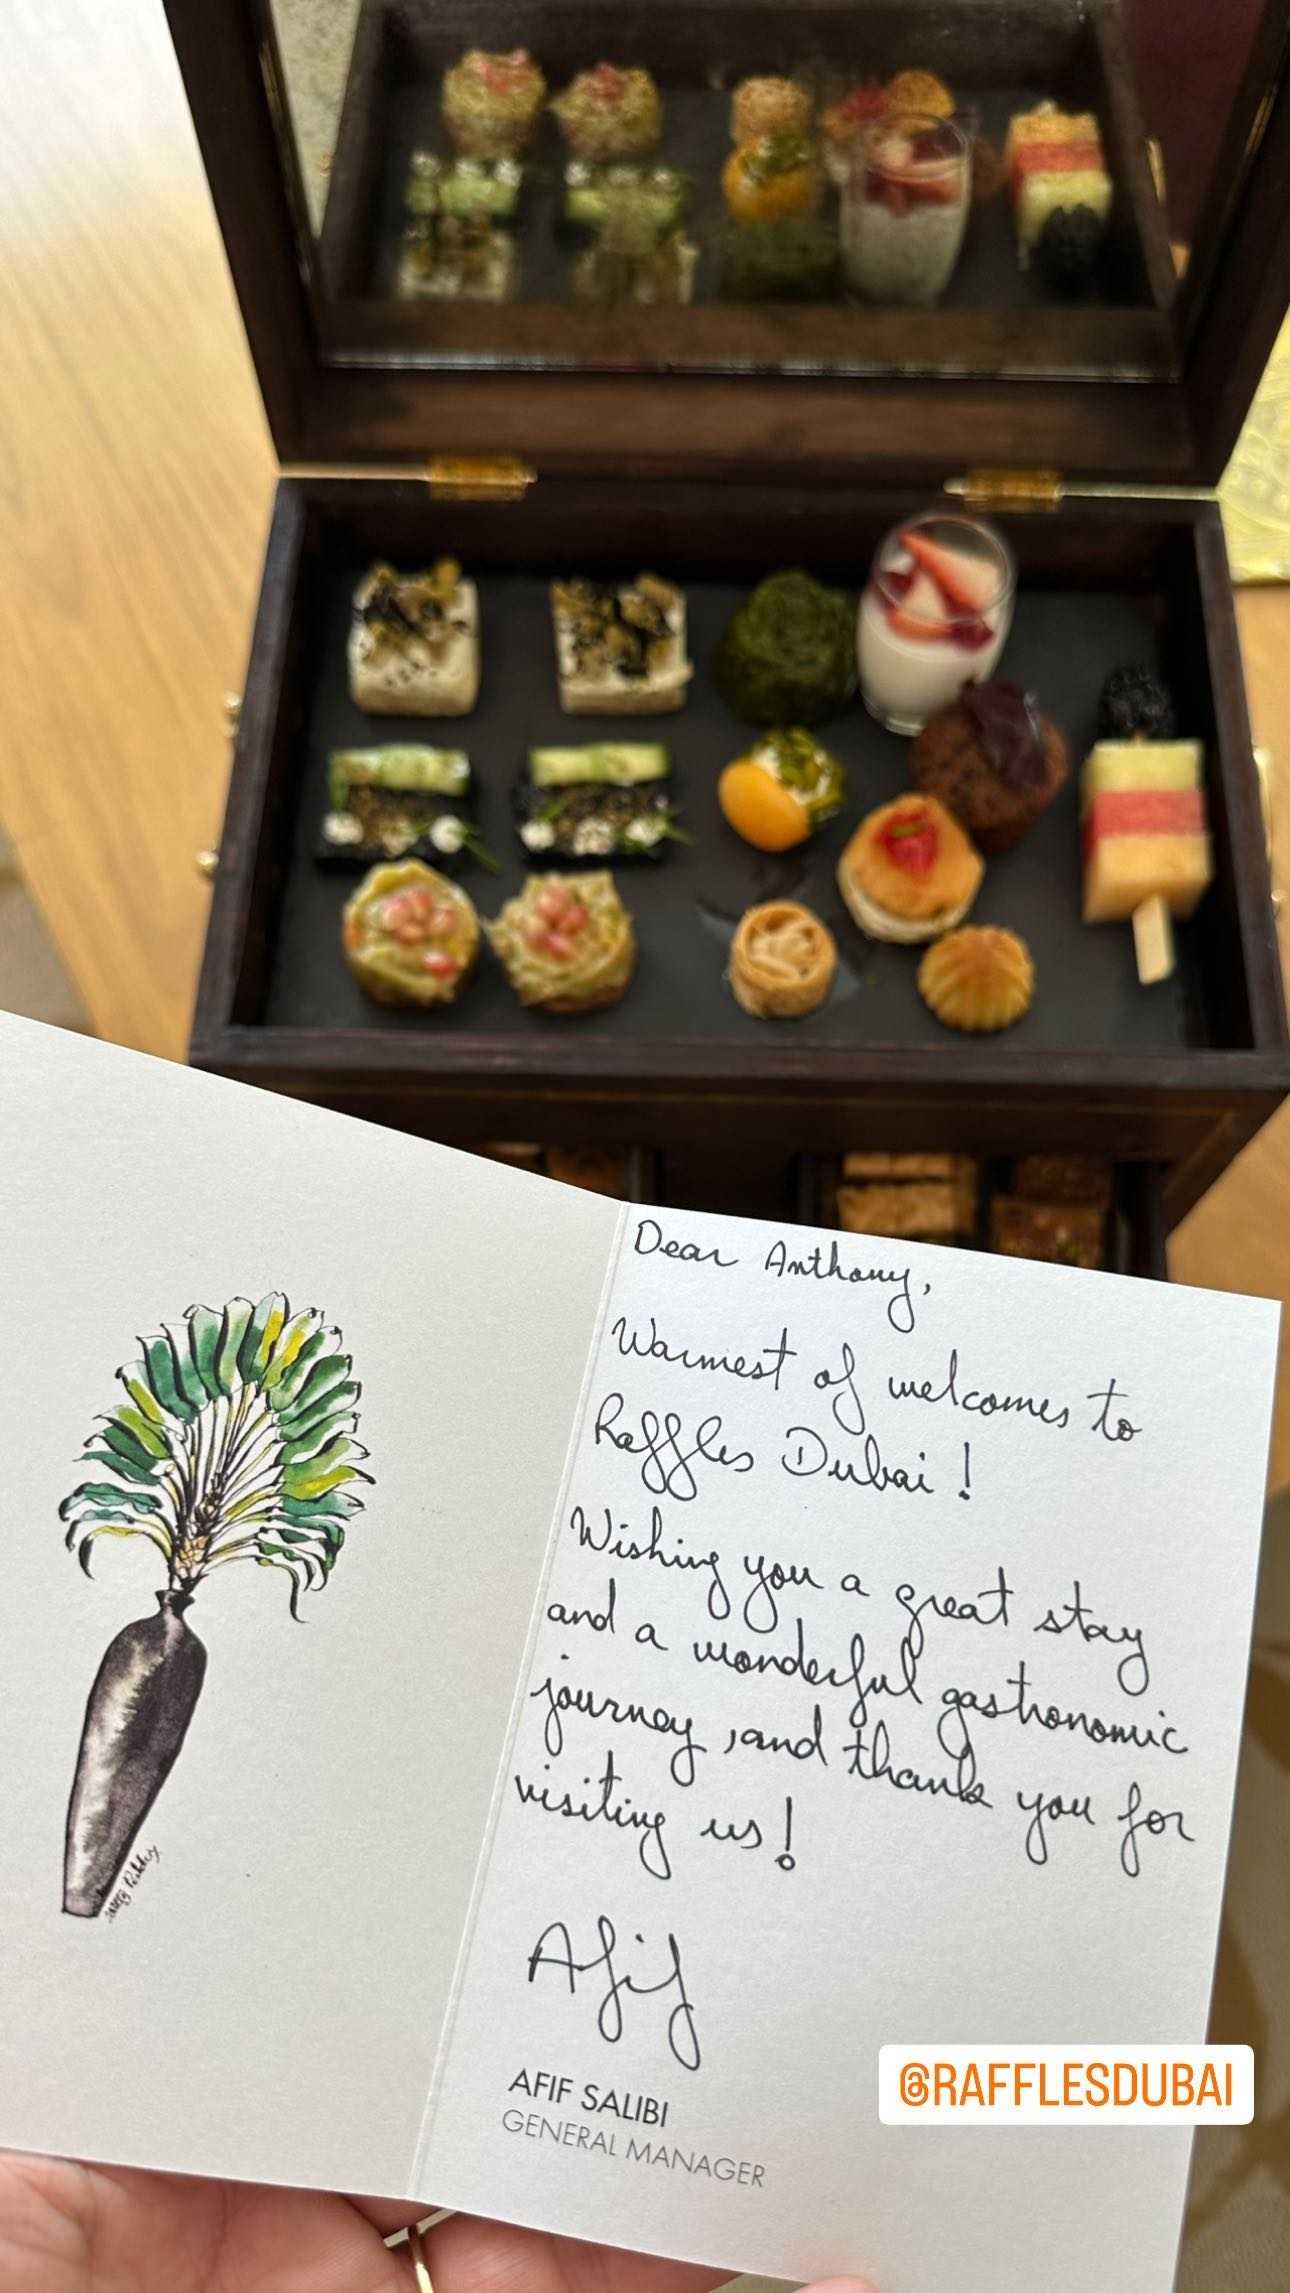 Dear Anthony,
Warmest of welcomes to
Raffles Dubai!
Wishing you a great stay
and a wonderful gastronomic
journey, and thank you for
visiting us!
Afif
AFIF SALIBI
GENERAL MANAGER
@RAFFLESDUBAI